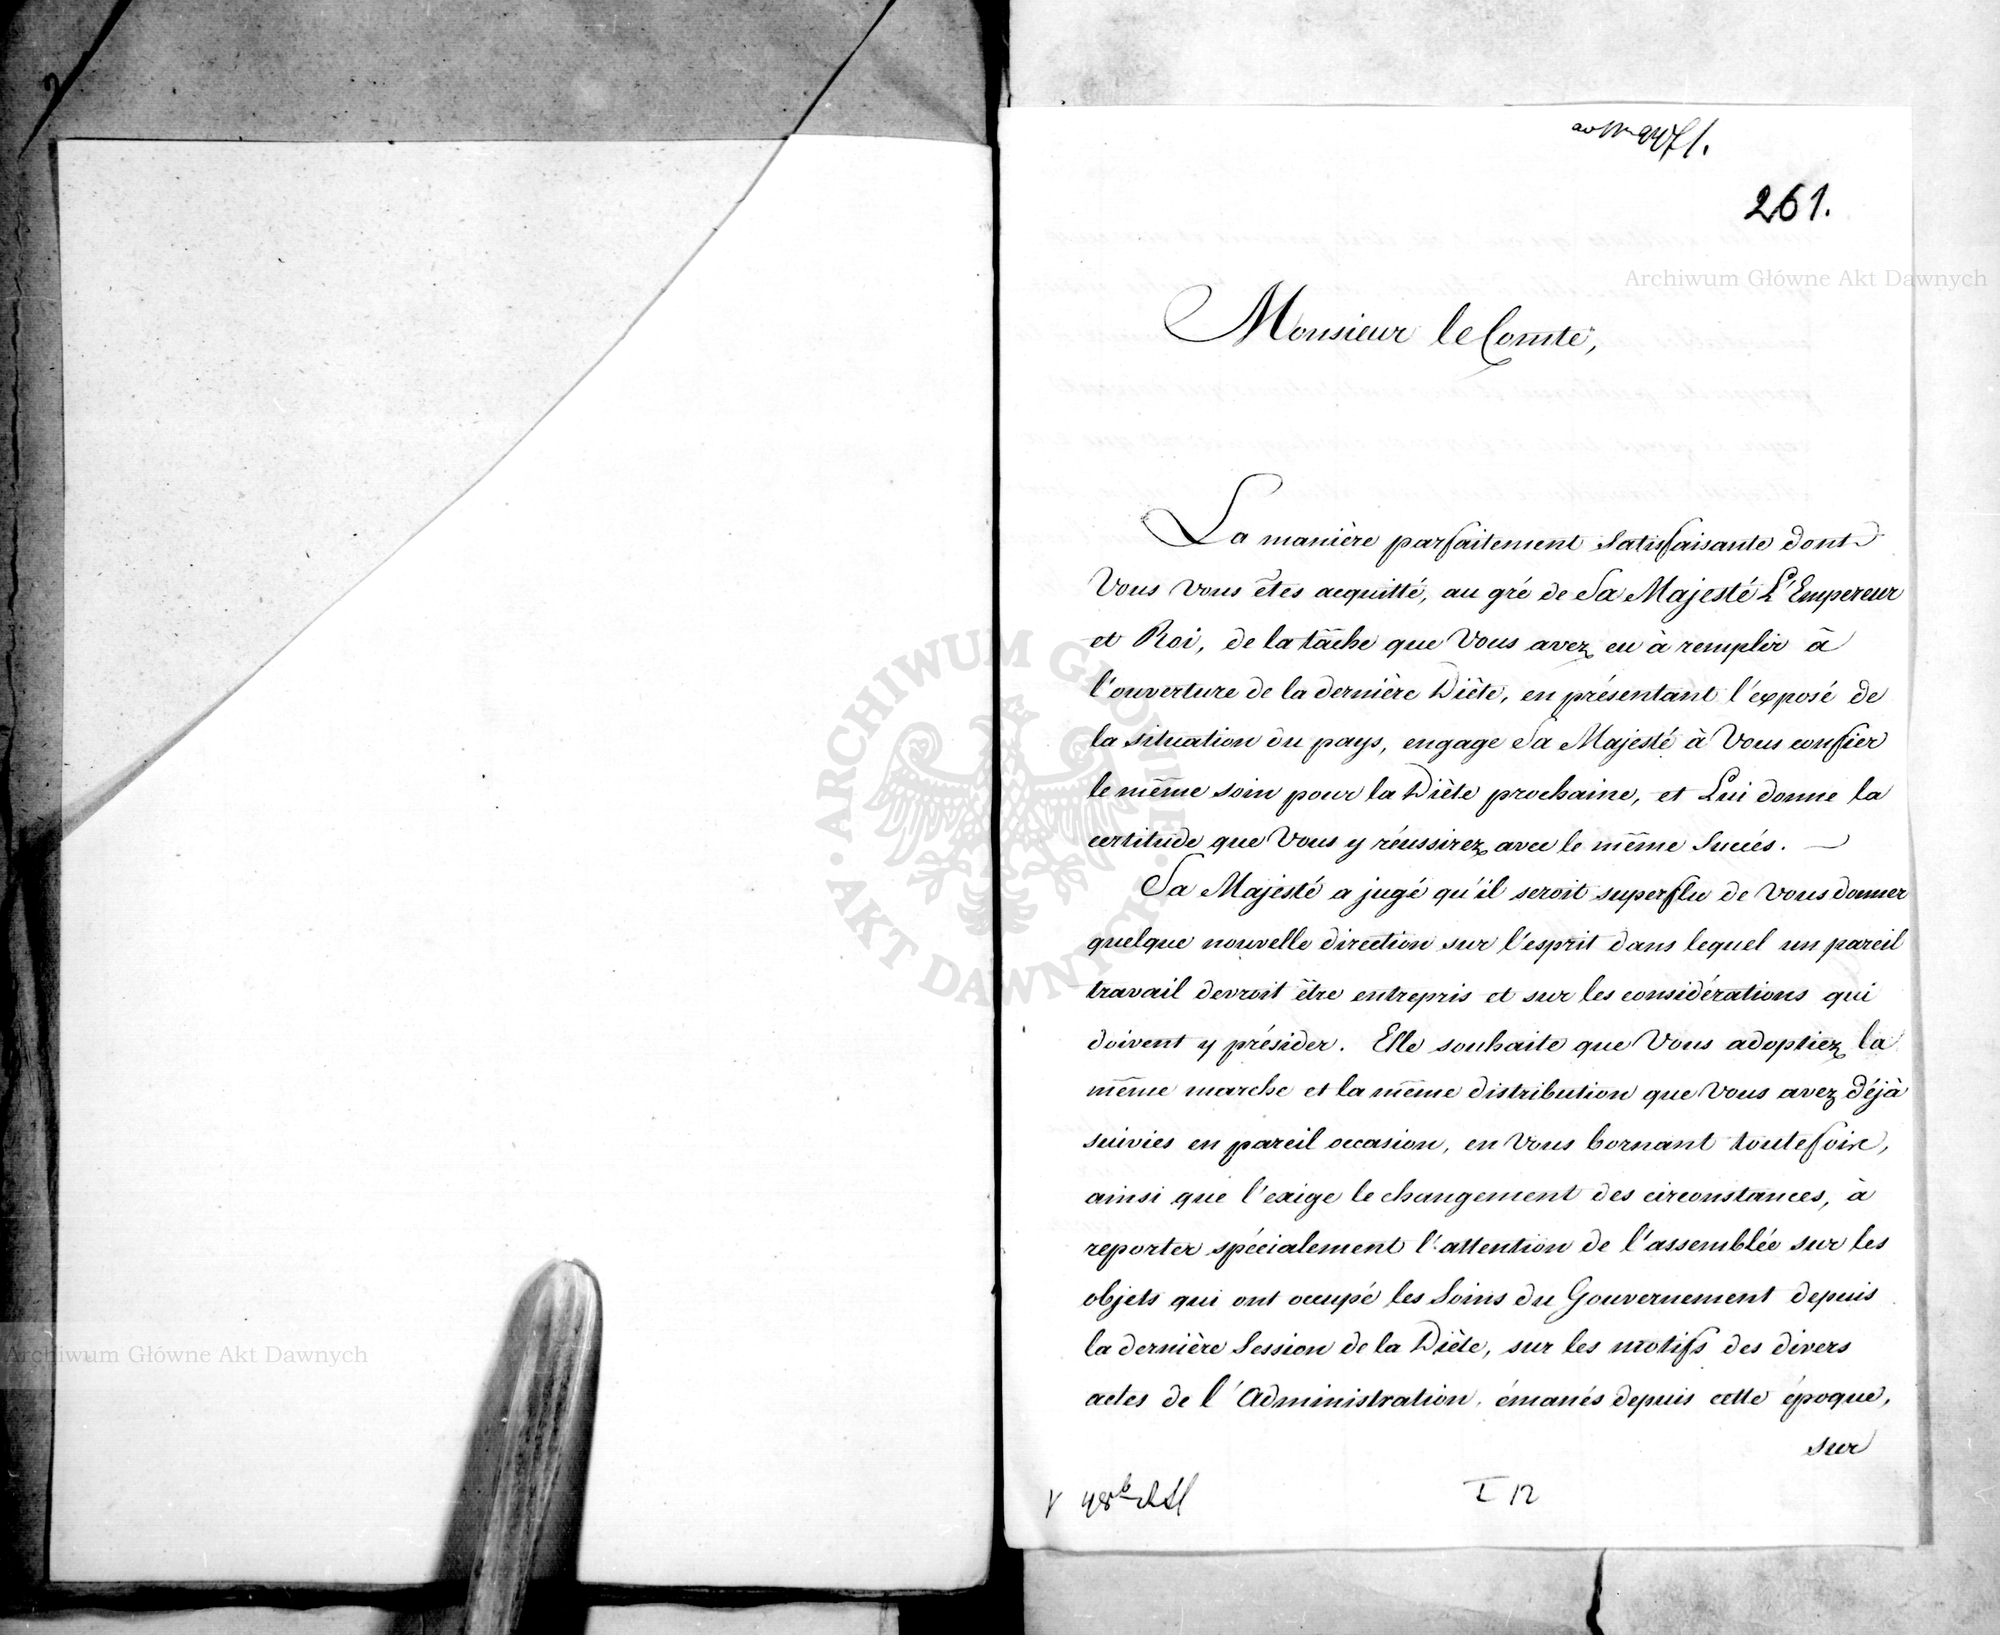 261.
Monsieur le Comte,
La manière parfaitement satisfaisante dont
Vous vous êtes acquitté, au gré de Sa Majesté L'Empereur
et Roi, de la tâche que Vous avez eu à remplir à
l'ouverture de la dernière Diète, en présentant l'exposé de
la situation du pays, engage Sa Majesté à Vous confier
le même soin pour la Diète prochaine, et Lui donne la
certitude que Vous y réussirez avec le même Succés.
Sa Majesté a jugé qu'il seroit superflu de Vous donner
quelque nouvelle direction sur l'esprit dans lequel un pareil
travail devroit être entrepris et sur les considérations qui
doivent y présider. Elle souhaite que Vous adoptiez la
même marche et la même distribution que Vous avez déjà
suivies en pareil occasion, en Vous bornant toutefois,
ainsi que l'exige le changement des circonstances, à
reporter spécialement l'attention de l'assemblée sur les
objets qui ont occupé les Soins du Gouvernement depuis
la dernière Session de la Diète, sur les motifs des divers
actes de l'Administration, émanés depuis cette époque,
sur
I 12
Archiwum Główne Akt Dawnych
Archiwum Główne Akt Dawnych
ARCHIWUM GŁÓWNE · AKT DAWNYCH ·